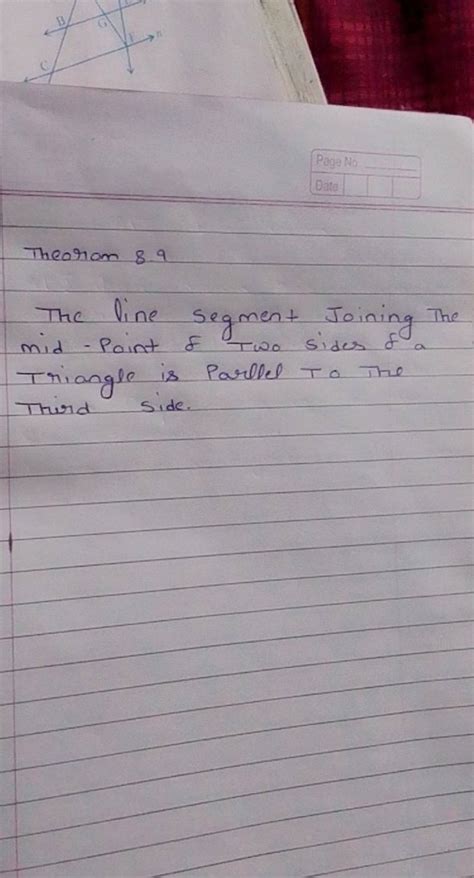 B
G
F
n
C
Page No.
Date
Theorom 8 9
The line segment Joining The
mid - Point of Two sides of a
Triangle is Parllel To The
Third side.